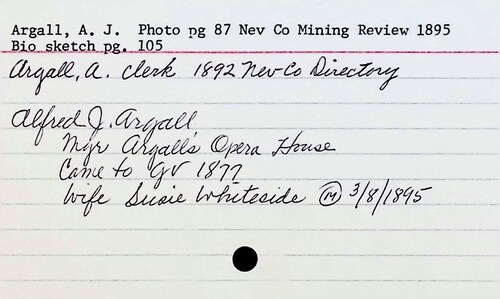 Argall, A. J.  Photo pg 87 Nev Co Mining Review 1895
Bio sketch pg. 105
Argall, A. clerk 1892 Nev-Co Directory
Alfred J. Argall
Mgr Argall's Opera House
Came to GV 1877
Wife Susie Whiteside (M) 3/8/1895